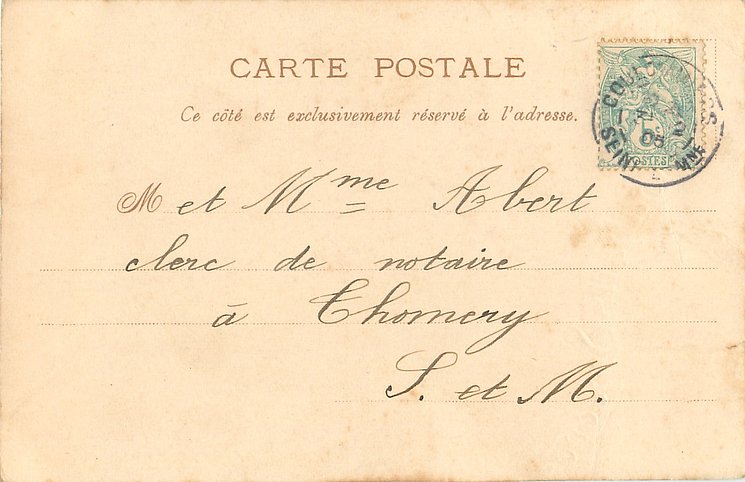 CARTE POSTALE
Ce côté est exclusivement réservé à l'adresse.
POSTES
SEINE
M et Mme Abert
clerc de notaire
à Thomery
S. et M.